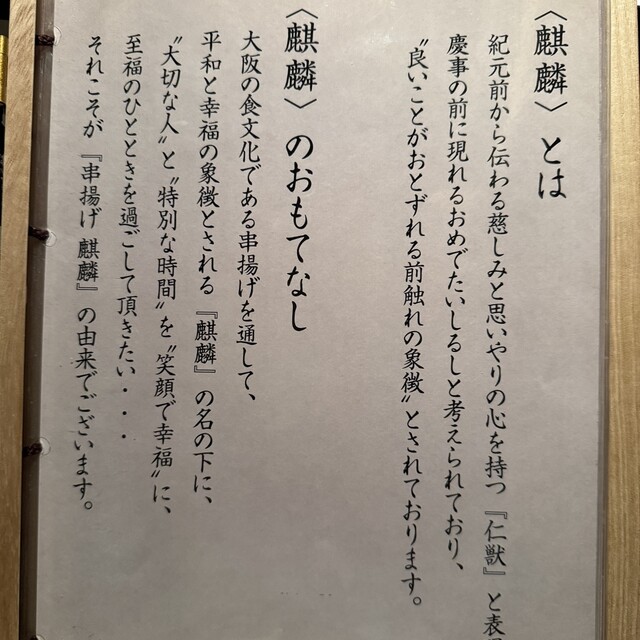 〈麒麟〉とは
紀元前から伝わる慈しみと思いやりの心を持つ『仁獣』と表
慶事の前に現れるおめでたいしるしと考えられており、
〝良いことがおとずれる前触れの象徴〟とされております。
〈麒麟〉のおもてなし
大阪の食文化である串揚げを通して、
平和と幸福の象徴とされる『麒麟』の名の下に、
〝大切な人〟と〝特別な時間〟を〝笑顔で幸福〟に、
至福のひとときを過ごして頂きたい・・・
それこそが『串揚げ 麒麟』の由来でございます。